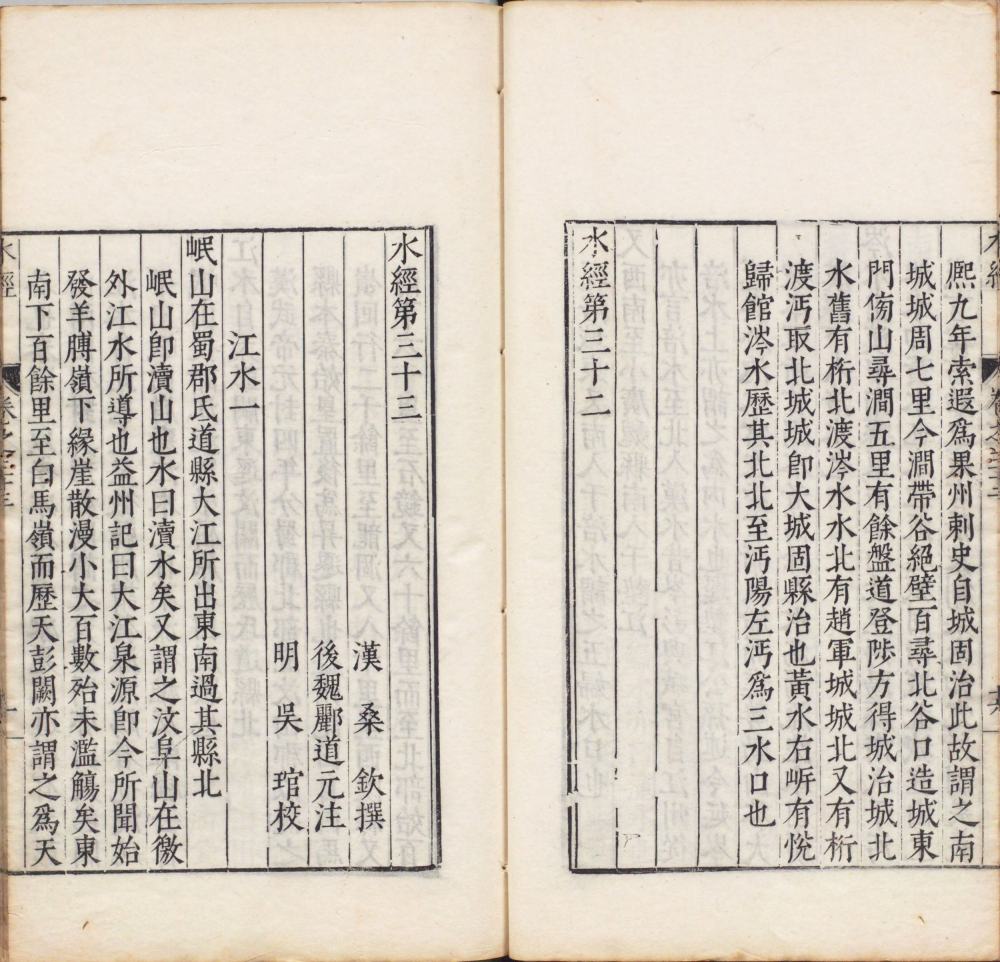 熈九年索遐爲果州刺史自城固治此故謂之南
城城周七里今澗帶谷絕壁百尋北谷口造城東
門傍山尋澗五里有餘盤道登陟方得城治城北
水舊有桁北渡涔水水北有趙軍城城北又有桁
渡沔取北城城卽大城固縣治也黃水右岍有恱
歸館涔水歷其北北至沔陽左沔爲三水口也
水經第三十二
水經第三十三
漢 桑 欽 撰
後魏酈道元注
明 吳 琯 校
江水一
岷山在蜀郡氐道縣大江所出東南過其縣北
岷山卽瀆山也水曰瀆水矣又謂之汶阜山在徼
外江水所導也益州記曰大江泉源卽今所聞始
發羊膊嶺下緣崖散漫小大百數殆未濫觴矣東
南下百餘里至白馬嶺而歷天彭闕亦謂之爲天
水經